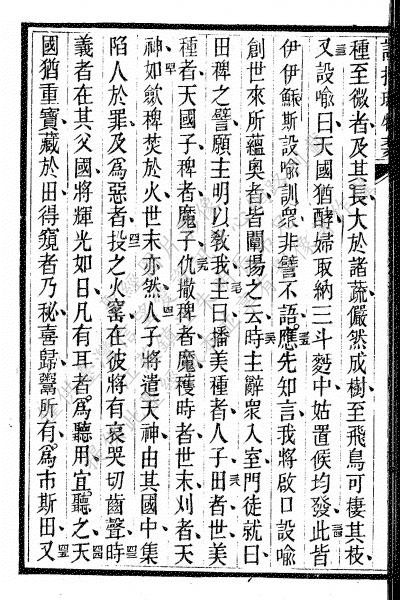 種至微者及其長大於諸蔬儼然成樹至飛鳥可棲其枝
又設喻曰天國猶酵婦取納三斗麪中姑置候均發此皆
伊伊穌斯設喻訓衆非譬不語應先知言我將啟口設喻
創世來所蘊奧者皆闡揚之云時主辭衆入室門徒就曰
田稗之譬願主明以敎我主曰播美種者人子田者世美
種者天國子稗者魔子仇撒稗者魔穫時者世末刈者天
神如歛稗焚於火世末亦然人子將遣天神由其國中集
陷人於罪及爲惡者投之火窰在彼將有哀哭切齒聲時
義者在其父國將輝光如日凡有耳者爲聽用宜聽之天
國猶重寶藏於田得窺者乃秘喜歸鬻所有爲市斯田又